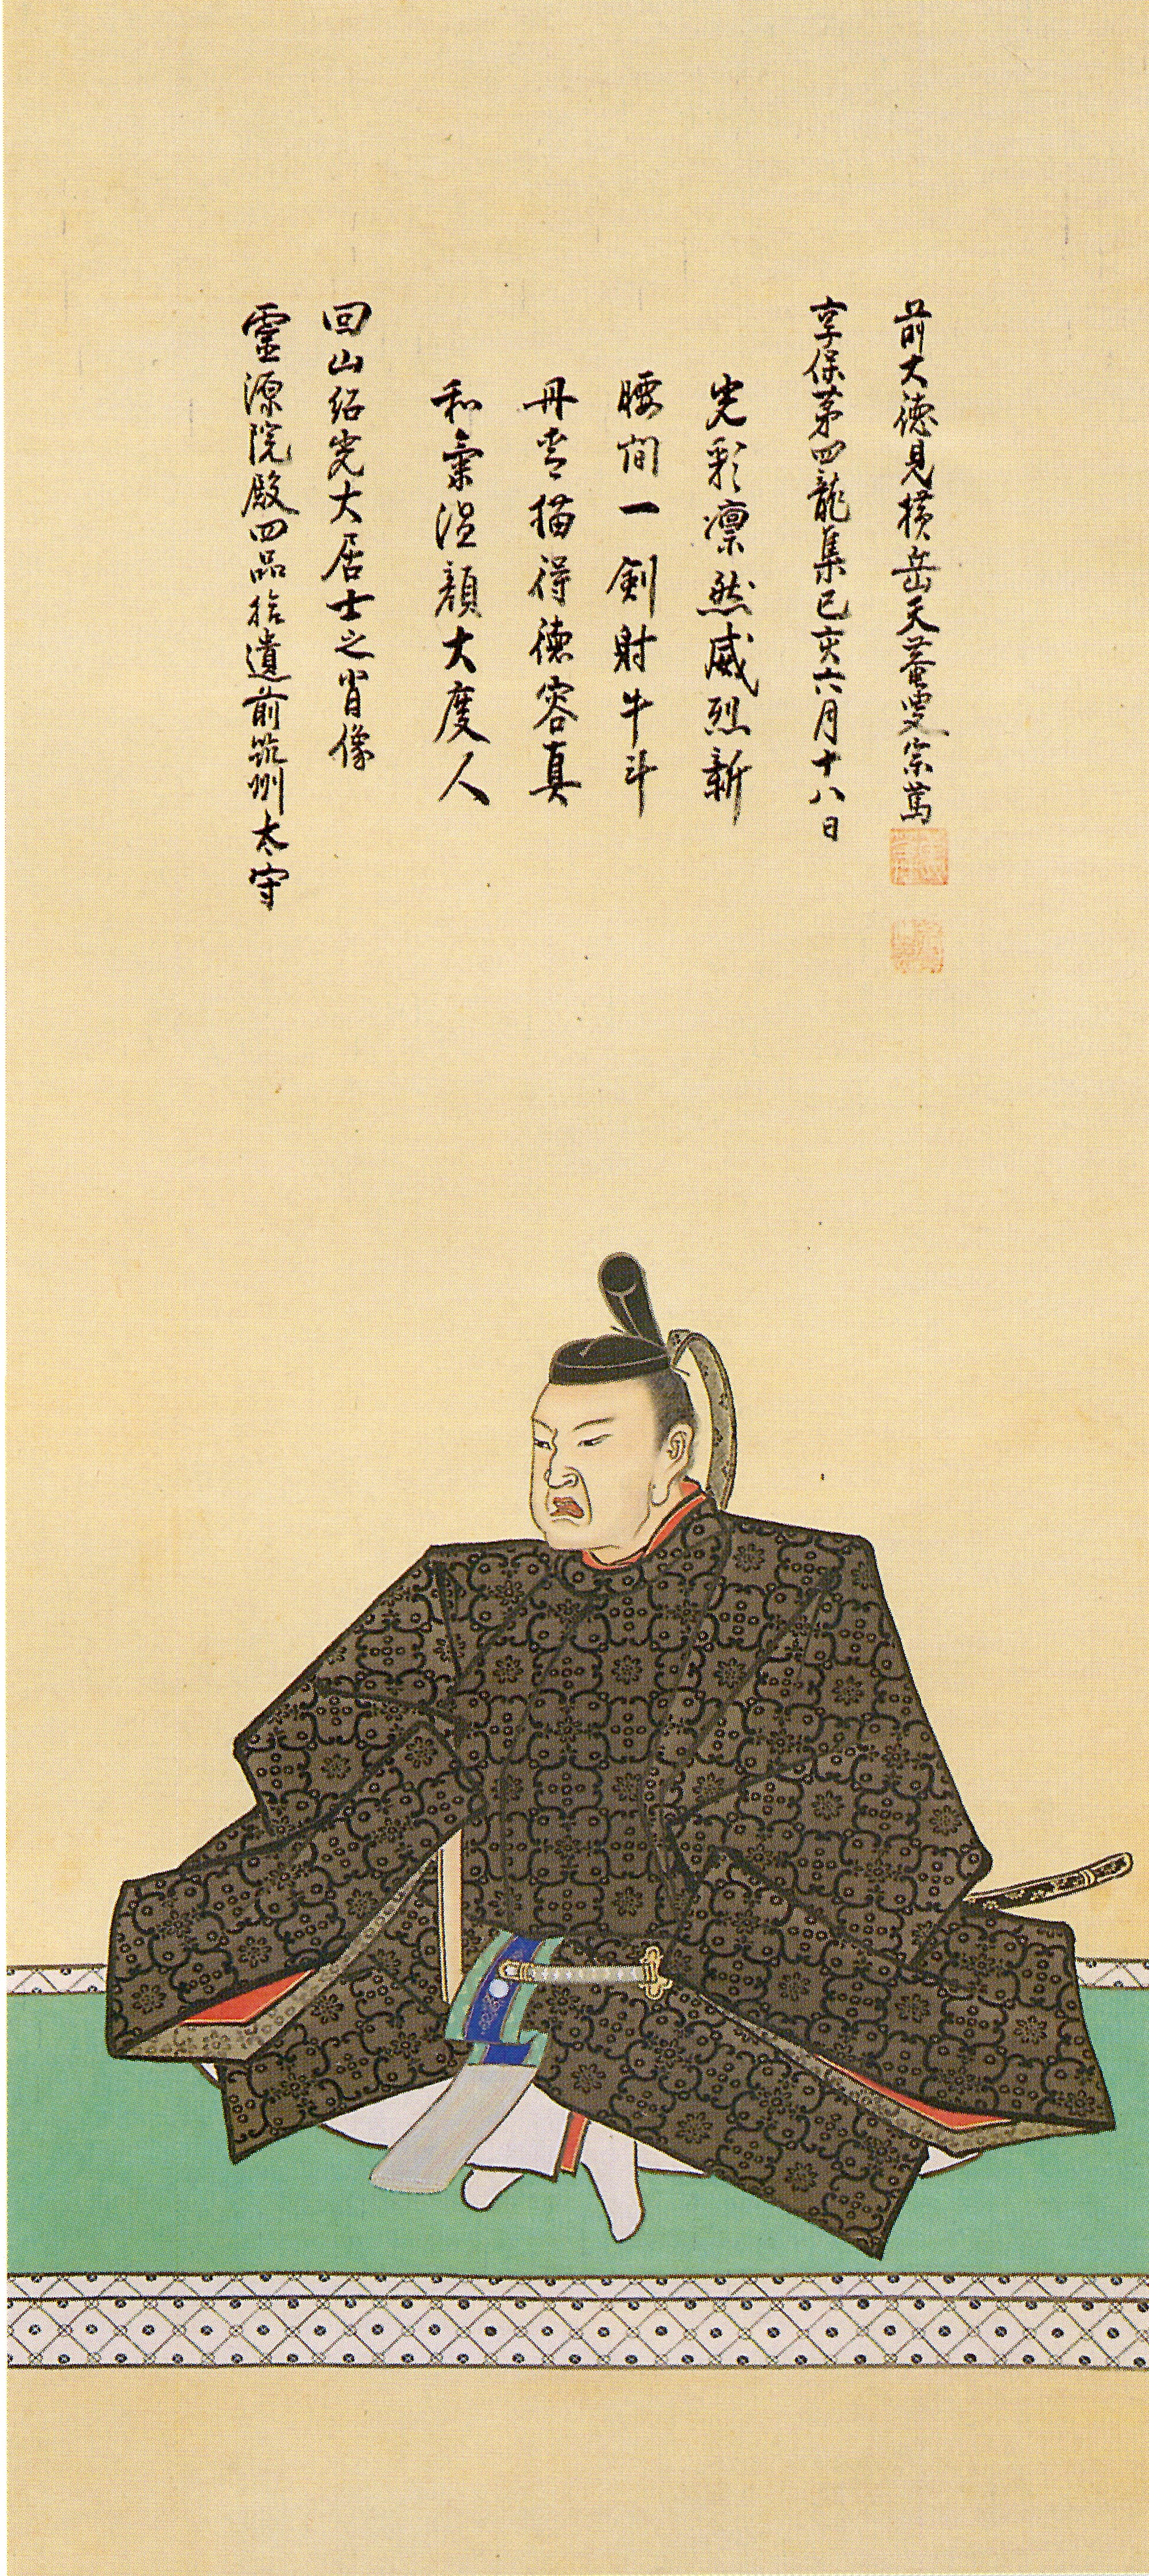 靈源院殿四品拾遺前筑州太守
回山紹光大居士之肖像
和氣温顔大度人
丹青描得徳容真
腰間一剣射牛斗
光彩凛然威烈新
享保苐四龍集己亥六月十八日
前大徳見横岳天菴叟宗萬